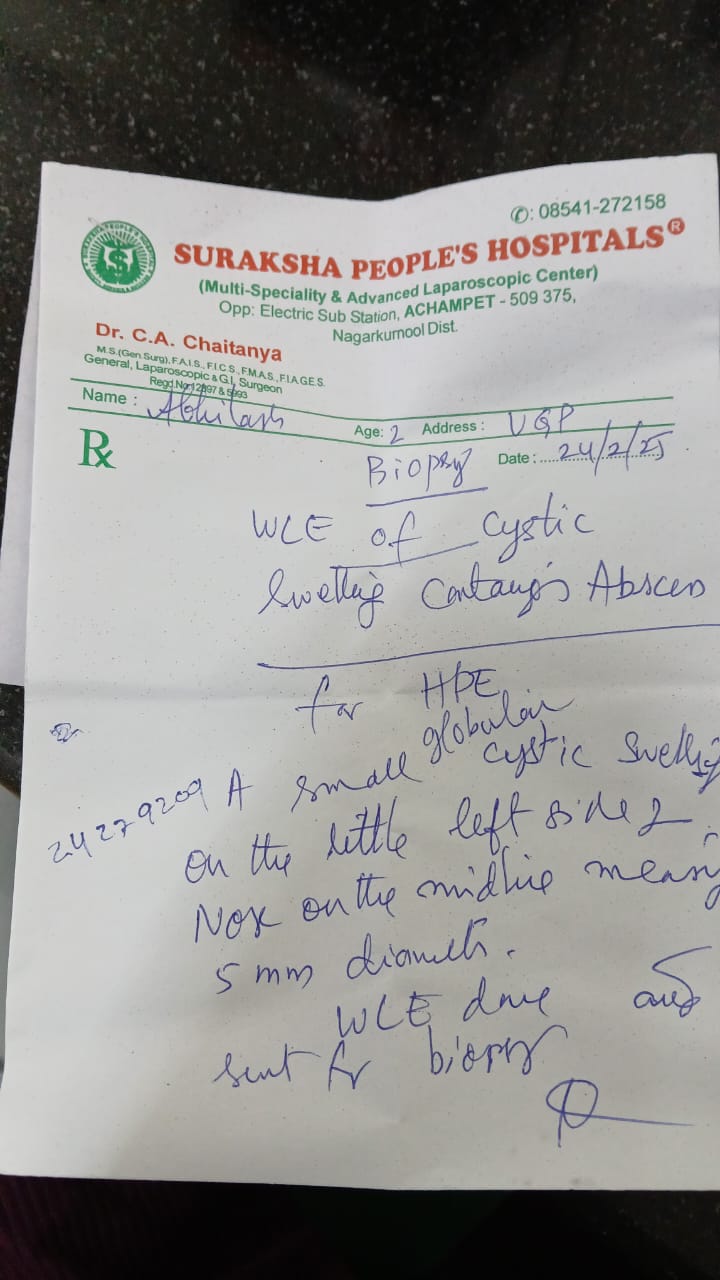 ✆: 08541-272158
SURAKSHA PEOPLE'S HOSPITALS®
(Multi-Speciality & Advanced Laparoscopic Center)
Opp: Electric Sub Station, ACHAMPET - 509 375,
Nagarkurnool Dist.
Dr. C.A. Chaitanya
M.S.(Gen.Surg), F.A.I.S., F.I.C.S., F.M.A.S., F.I.A.G.E.S.
General, Laparoscopic & G.I. Surgeon
Regd.No. &
Name : Abhilash Age: 2 Address : UGP
Rx Biopsy Date : 24/2/25
WLE of cystic
Swelling Abscess
for HPE
24279209 A small globular cystic swelling
on the little left side
on the midline
5 mm
WLE done and
sent for biopsy